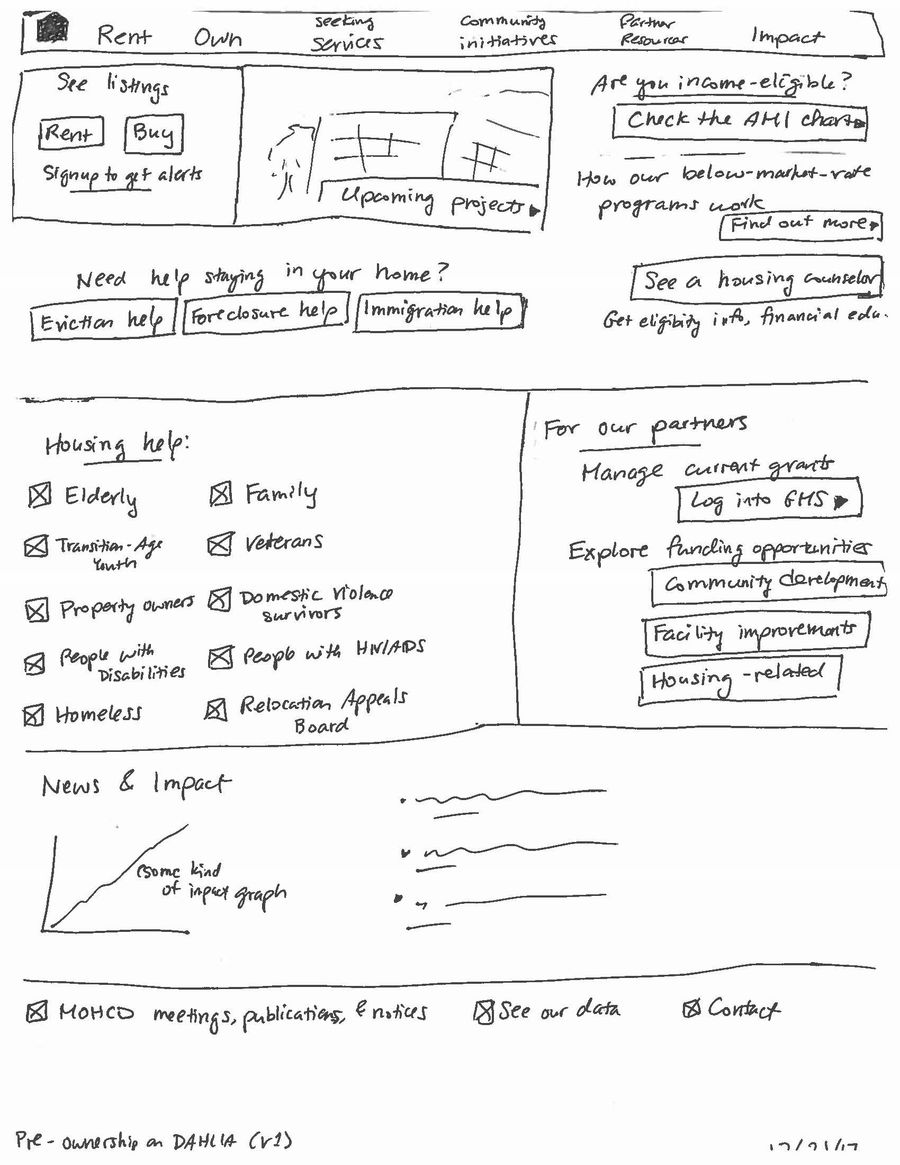 Rent
Own
seeking
services
Community
initiatives
Partner
Resources
Impact
See listings
Rent
Buy
Signup to get alerts
Upcoming projects
Are you income-eligible?
Check the AMI chart
How our below-market-rate
programs work
Find out more
See a housing counselor
Get eligibity info, financial edu.
Need help staying in your home?
Eviction help
Foreclosure help
Immigration help
Housing help:
Elderly
Family
Transition-Age
Youth
Veterans
Property owners
Domestic Violence
survivors
People with
Disabilities
People with HIV/AIDS
Homeless
Relocation Appeals
Board
For our partners
Manage current grants
Log into GMS
Explore funding opportunities
Community development
Facility improvements
Housing-related
News & Impact
(some kind
of impact graph
MOHCD meetings, publications, & notices
See our data
Contact
Pre-ownership on DAHLIA (v1)